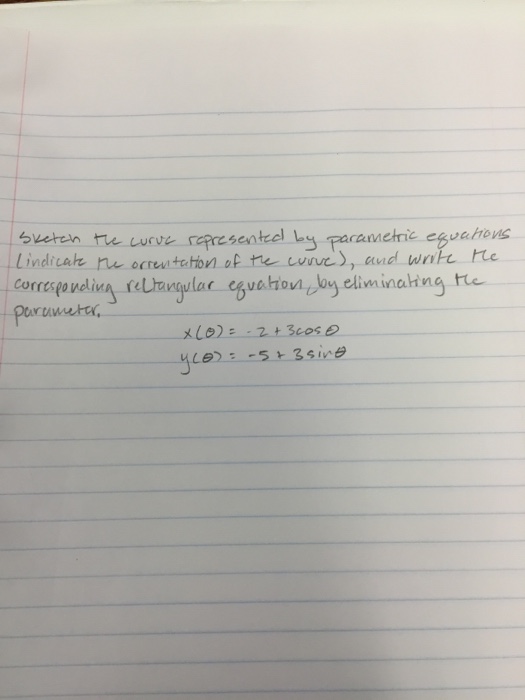 Sketch the curve represented by parametric equations
(indicate the orrentation of the curve), and write the
corresponding rectangular equation, by eliminating the
parameter.
x(θ) = -2 + 3cosθ
y(θ) = -5 + 3sinθ